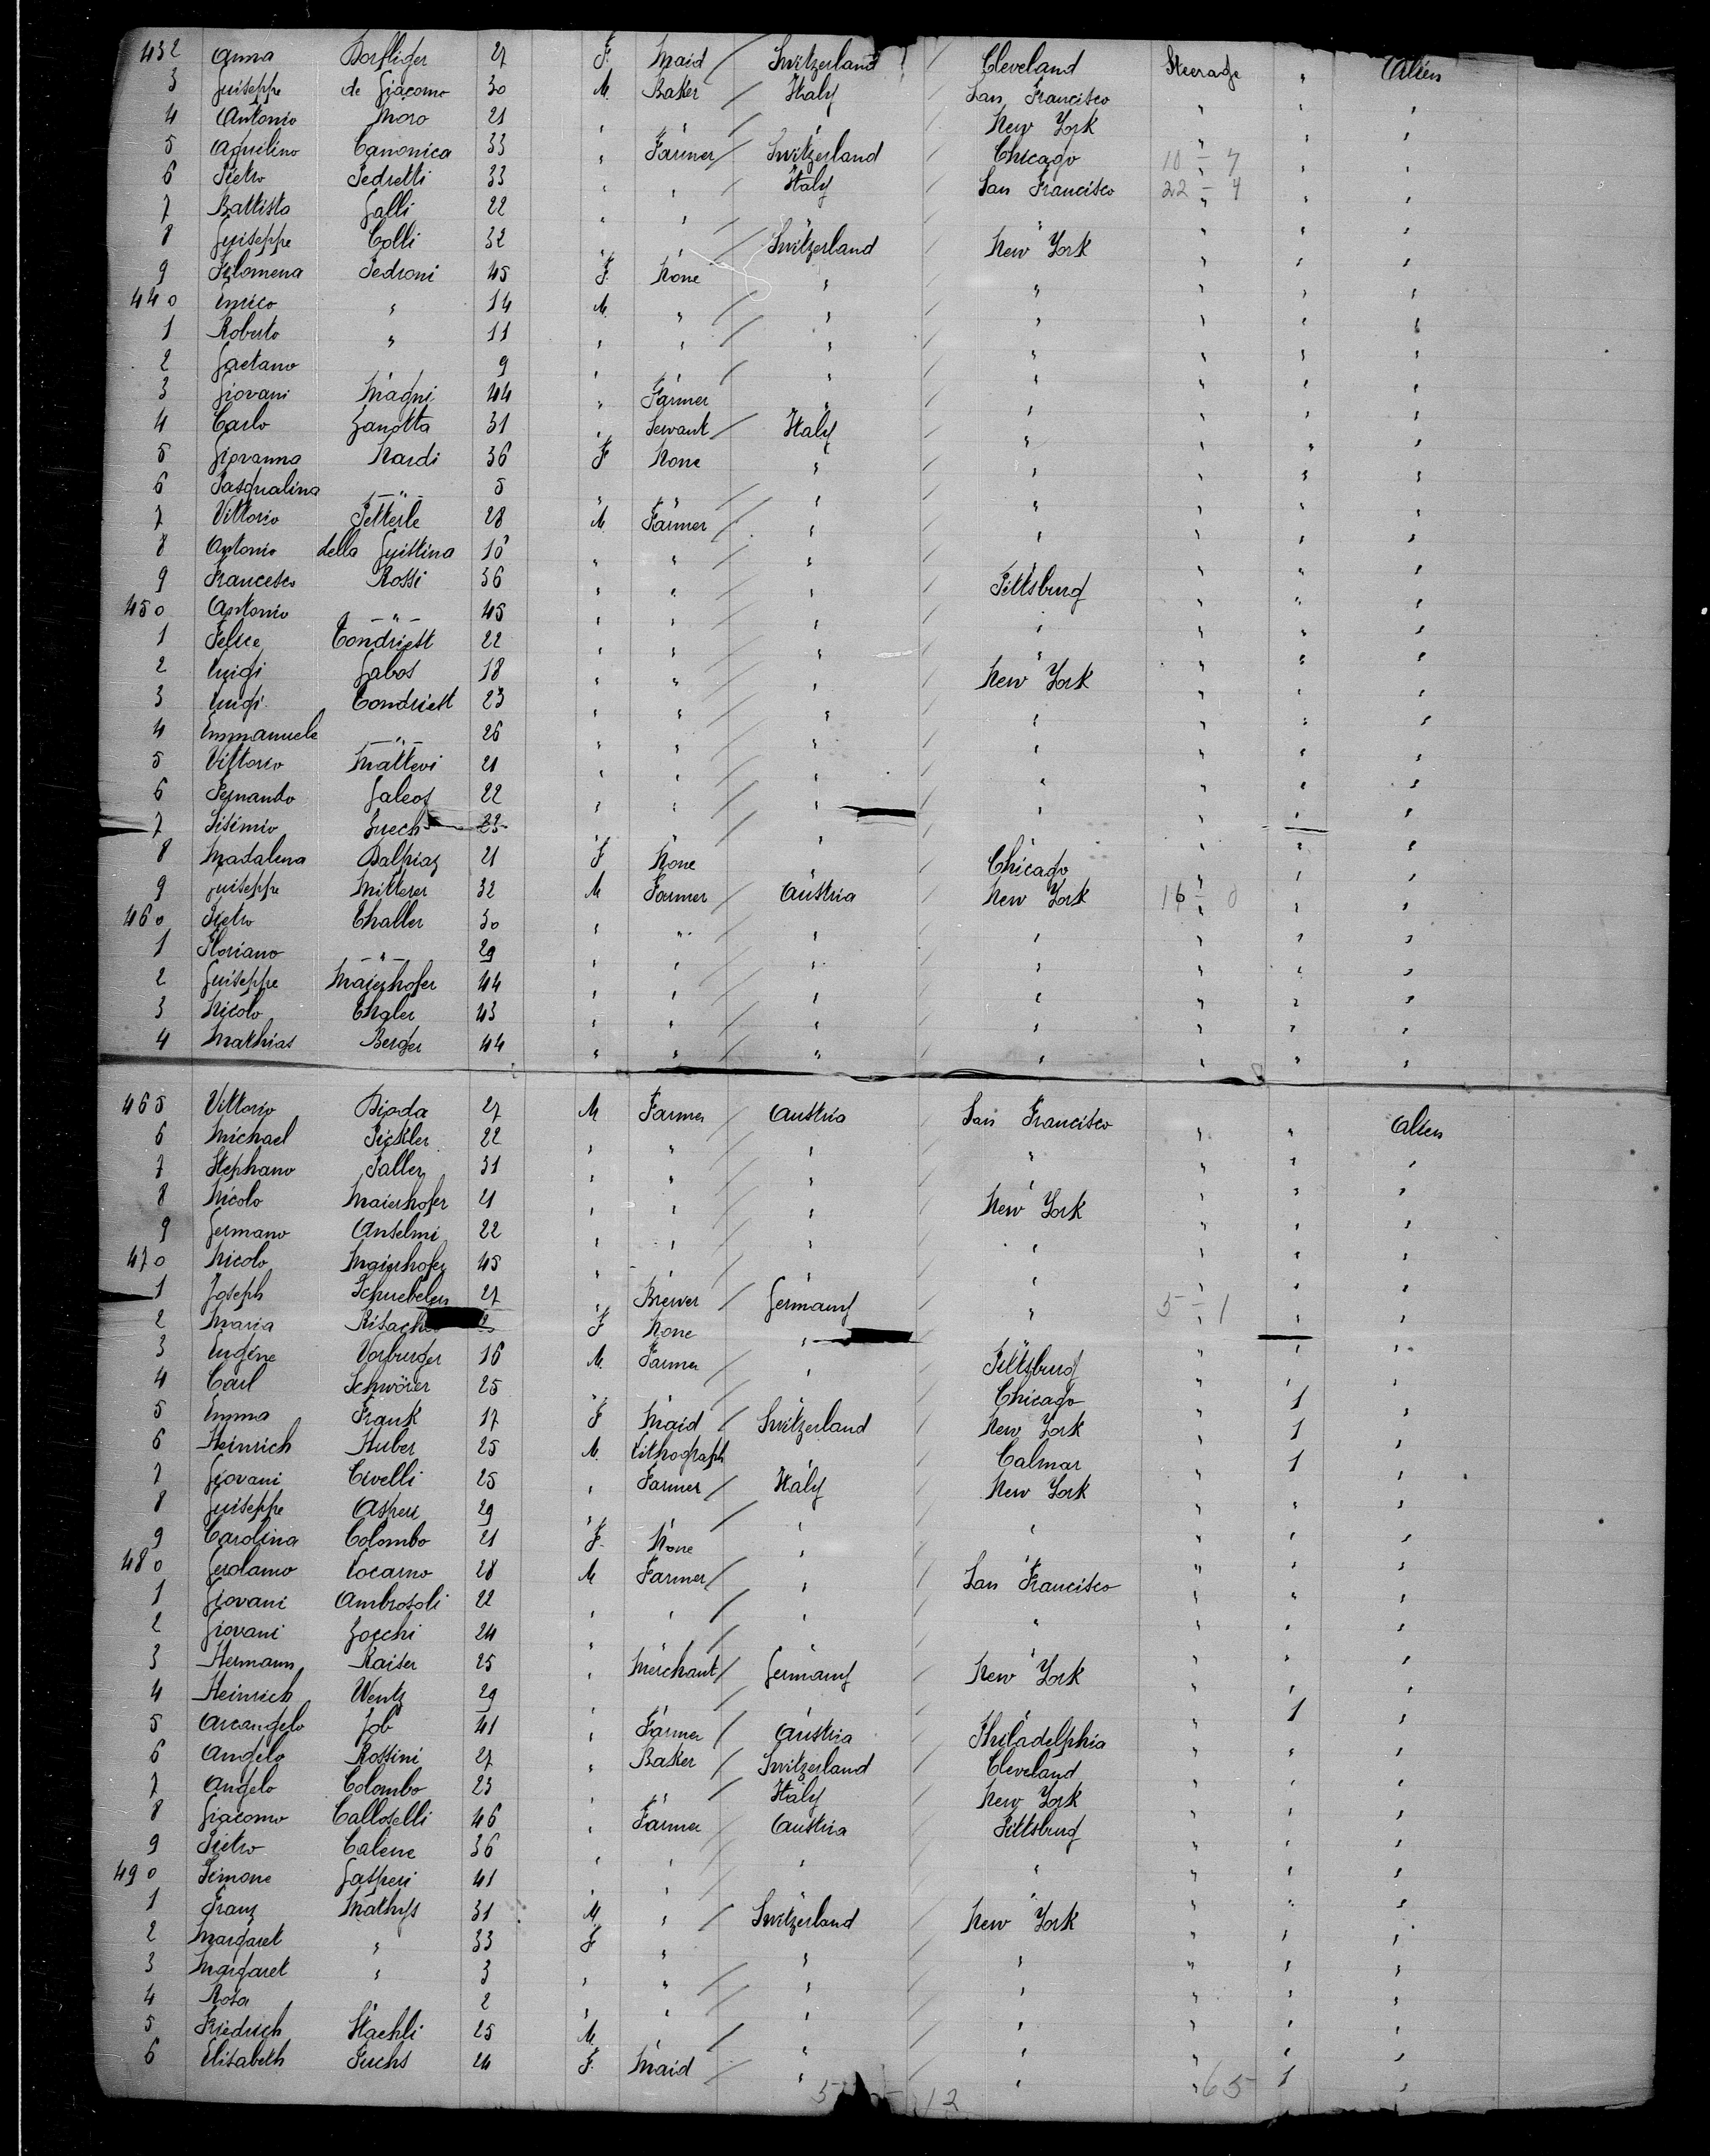 432 Anna Dorfliger 27 F. Maid / Switzerland / Cleveland Steerage " Alien
3 Guiseppe de Giacomo 30 M. Baker / Italy / San Francisco " " "
4 Antonio Moro 21 " " / " / New York " " "
5 Aquilino Canonica 33 " Farmer / Switzerland / Chicago 10 – 7 " " "
6 Pietro Pedretti 33 " " / Italy / San Francisco 22 – 4 " " "
7 Battista Galli 22 " " / " / " " " "
8 Guiseppe Colli 32 " " / Switzerland / New York " " "
9 Filomena Pedroni 45 F. None / " / " " " "
440 Enrico " 14 M. " / " / " " " "
1 Roberto " 11 " " / " / " " " "
2 Gaetano " 9 " " / " / " " " "
3 Giovani Magni 44 " Farmer / " / " " " "
4 Carlo Zanotta 31 " Servant / Italy / " " " "
5 Giovanna Nardi 36 F None / " / " " " "
6 Pasqualina – " – 5 " " / " / " " " "
7 Vittorio Petterle 28 M. Farmer / " / " " " "
8 Antonio della Guistina 16 " " / " / " " " "
9 Francesco Rossi 36 " " / " / Pittsburg " " "
450 Antonio – " – 45 " " / " / " " " "
1 Felice 22 " " / " / " " " "
2 Luigi Gabos 18 " " / " / New York " " "
3 Luigi 23 " " / " / " " " "
4 Emmanuele – " – 26 " " / " / " " " "
5 Vittorio Mattevi 21 " " / " / " " " "
6 Fernando 22 " " / " / " " " "
7 Sisimio Zuech " " / " / " " " "
8 Madalena Dalpiaz 21 F None / " / Chicago " " "
9 Guiseppe Mitterer 32 M Farmer / Austria / New York 16 – 0 " " "
460 Pietro Thaller 30 " " / " / " " " "
1 Floriano – " – 29 " " / " / " " " "
2 Guiseppe Maierhofer 44 " " / " / " " " "
3 Nicolo Thaler 43 " " / " / " " " "
4 Mathias Berger 44 " " / " / " " " "
465 Vittorio 27 M. Farmer / Austria / San Francisco " " Alien
6 Michael Pickler 22 " " / " / " " " "
7 Stephano 31 " " / " / " " " "
8 Nicolo Maierhofer 21 " " / " / New York " " "
9 Germano Anselmi 22 " " / " / " " " "
470 Nicolo Maierhofer 45 " " / " / " " " "
1 Joseph 27 " Brewer / Germany / " 5 – 1 " " "
2 Maria F None / " / " " " "
3 Eugène Vorburger 16 M. Farmer / " / Pittsburg " " "
4 Carl Schwörer 25 " " / " / Chicago " 1 "
5 Emma Frank 17 F Maid / Switzerland / New York " 1 "
6 Heinrich Huber 25 M. Lithograph " / Calmar " 1 "
7 Giovani Civelli 25 " Farmer / Italy / New York " " "
8 Guiseppe Asperi 29 " " / " / " " " "
9 Carolina Colombo 21 F. None / " / " " " "
480 Gerolamo Locarno 28 M Farmer / " / San Francisco " " "
1 Giovani Ambrosoli 22 " " / " / " " " "
2 Giovani Zocchi 24 " " / " / " " " "
3 Hermann Kaiser 25 " Merchant / Germany / New York " " "
4 Heinrich Wentz 29 " " / " / " " 1 "
5 Arcangelo Job 41 " Farmer / Austria / Philadelphia " " "
6 Angelo Rossini 27 " Baker / Switzerland / Cleveland " " "
7 Angelo Colombo 23 " " / Italy / New York " " "
8 Giacomo Calloselli 46 " Farmer / Austria / Pittsburg " " "
9 Pietro Calene 36 " " / " / " " " "
490 Simone Gasperi 41 " " / " / " " " "
1 Franz Mathys 31 M. " / Switzerland / New York " " "
2 Margaret " 33 F " / " / " " " "
3 Margaret " 3 " " / " / " " " "
4 Rosa " 2 " " / " / " " " "
5 Friedrich Staehli 25 M. " / " / " " " "
6 Elisabeth Fuchs 24 F. Maid / " / " " 1 "
65